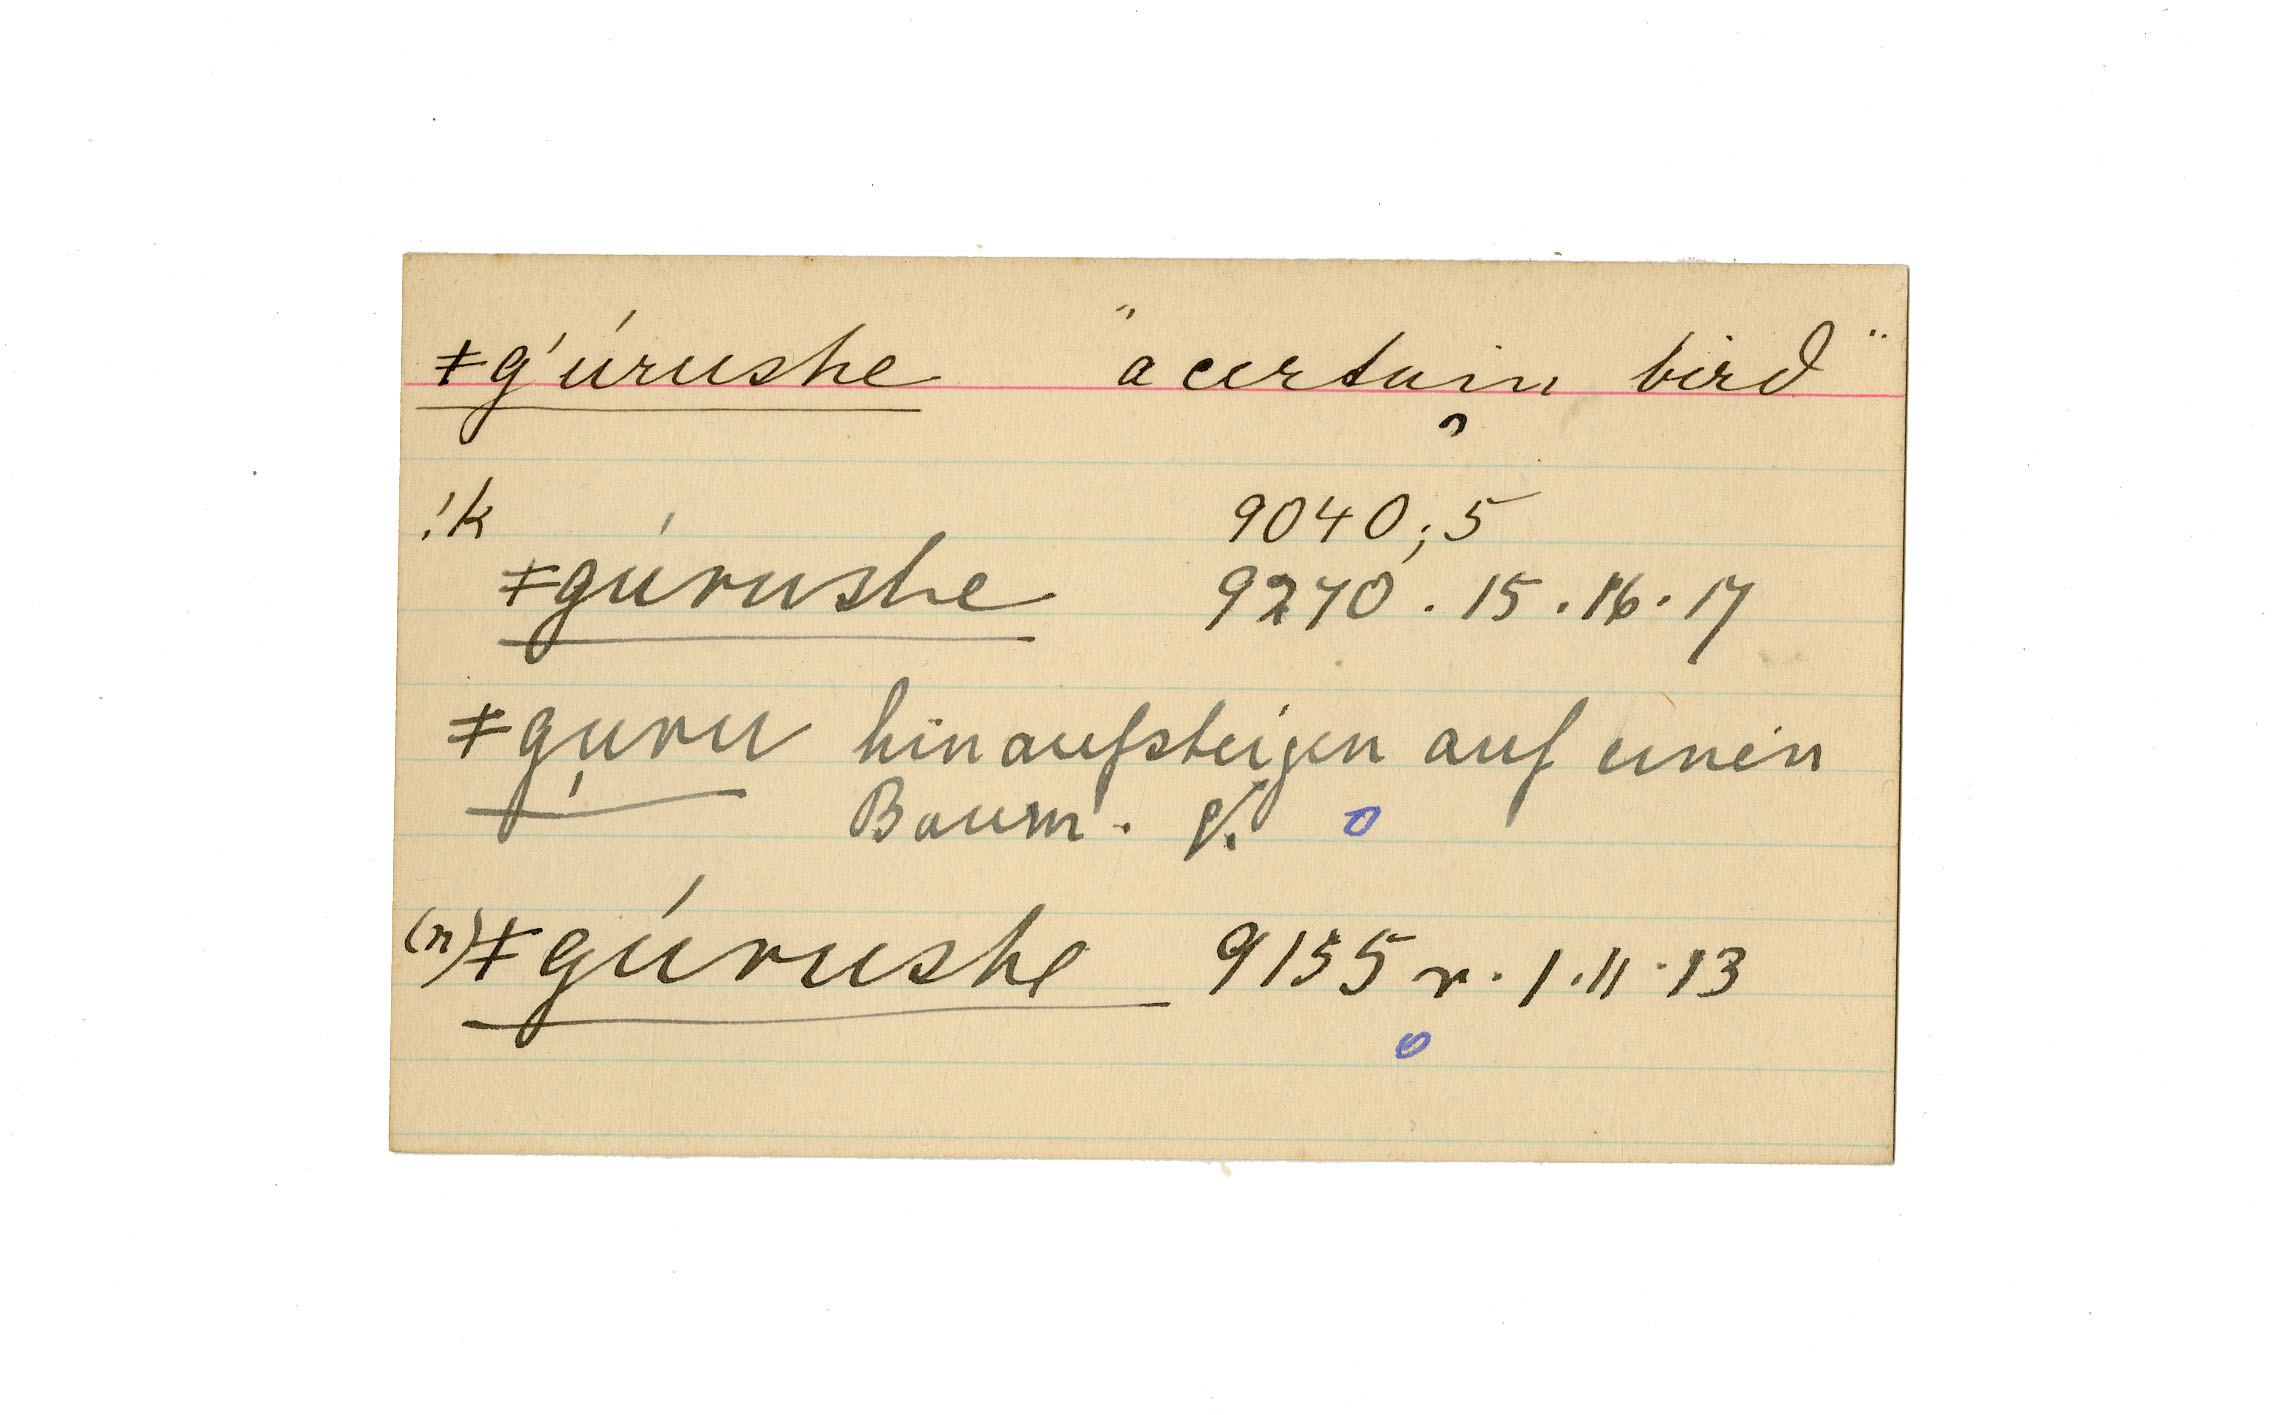 ǂg'úrushe "a certain bird"
!k 9040,;5
ǂgúrushe 9270 . 15 . 16 . 17
ǂguru hinaufsteigen auf einen
Baum .
(n) ǂgúrushe 9155 r . 1 . 11 . 13